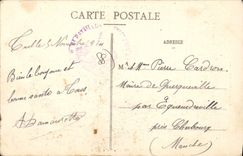 CARTE POSTALE
ADRESSE
5 Novembre
Bien le bonjour et
bonne santé à tous
M. & Mme Pierre Cardron
Maire de Querqueville
par Equeurdreville
près Cherbourg
Manche